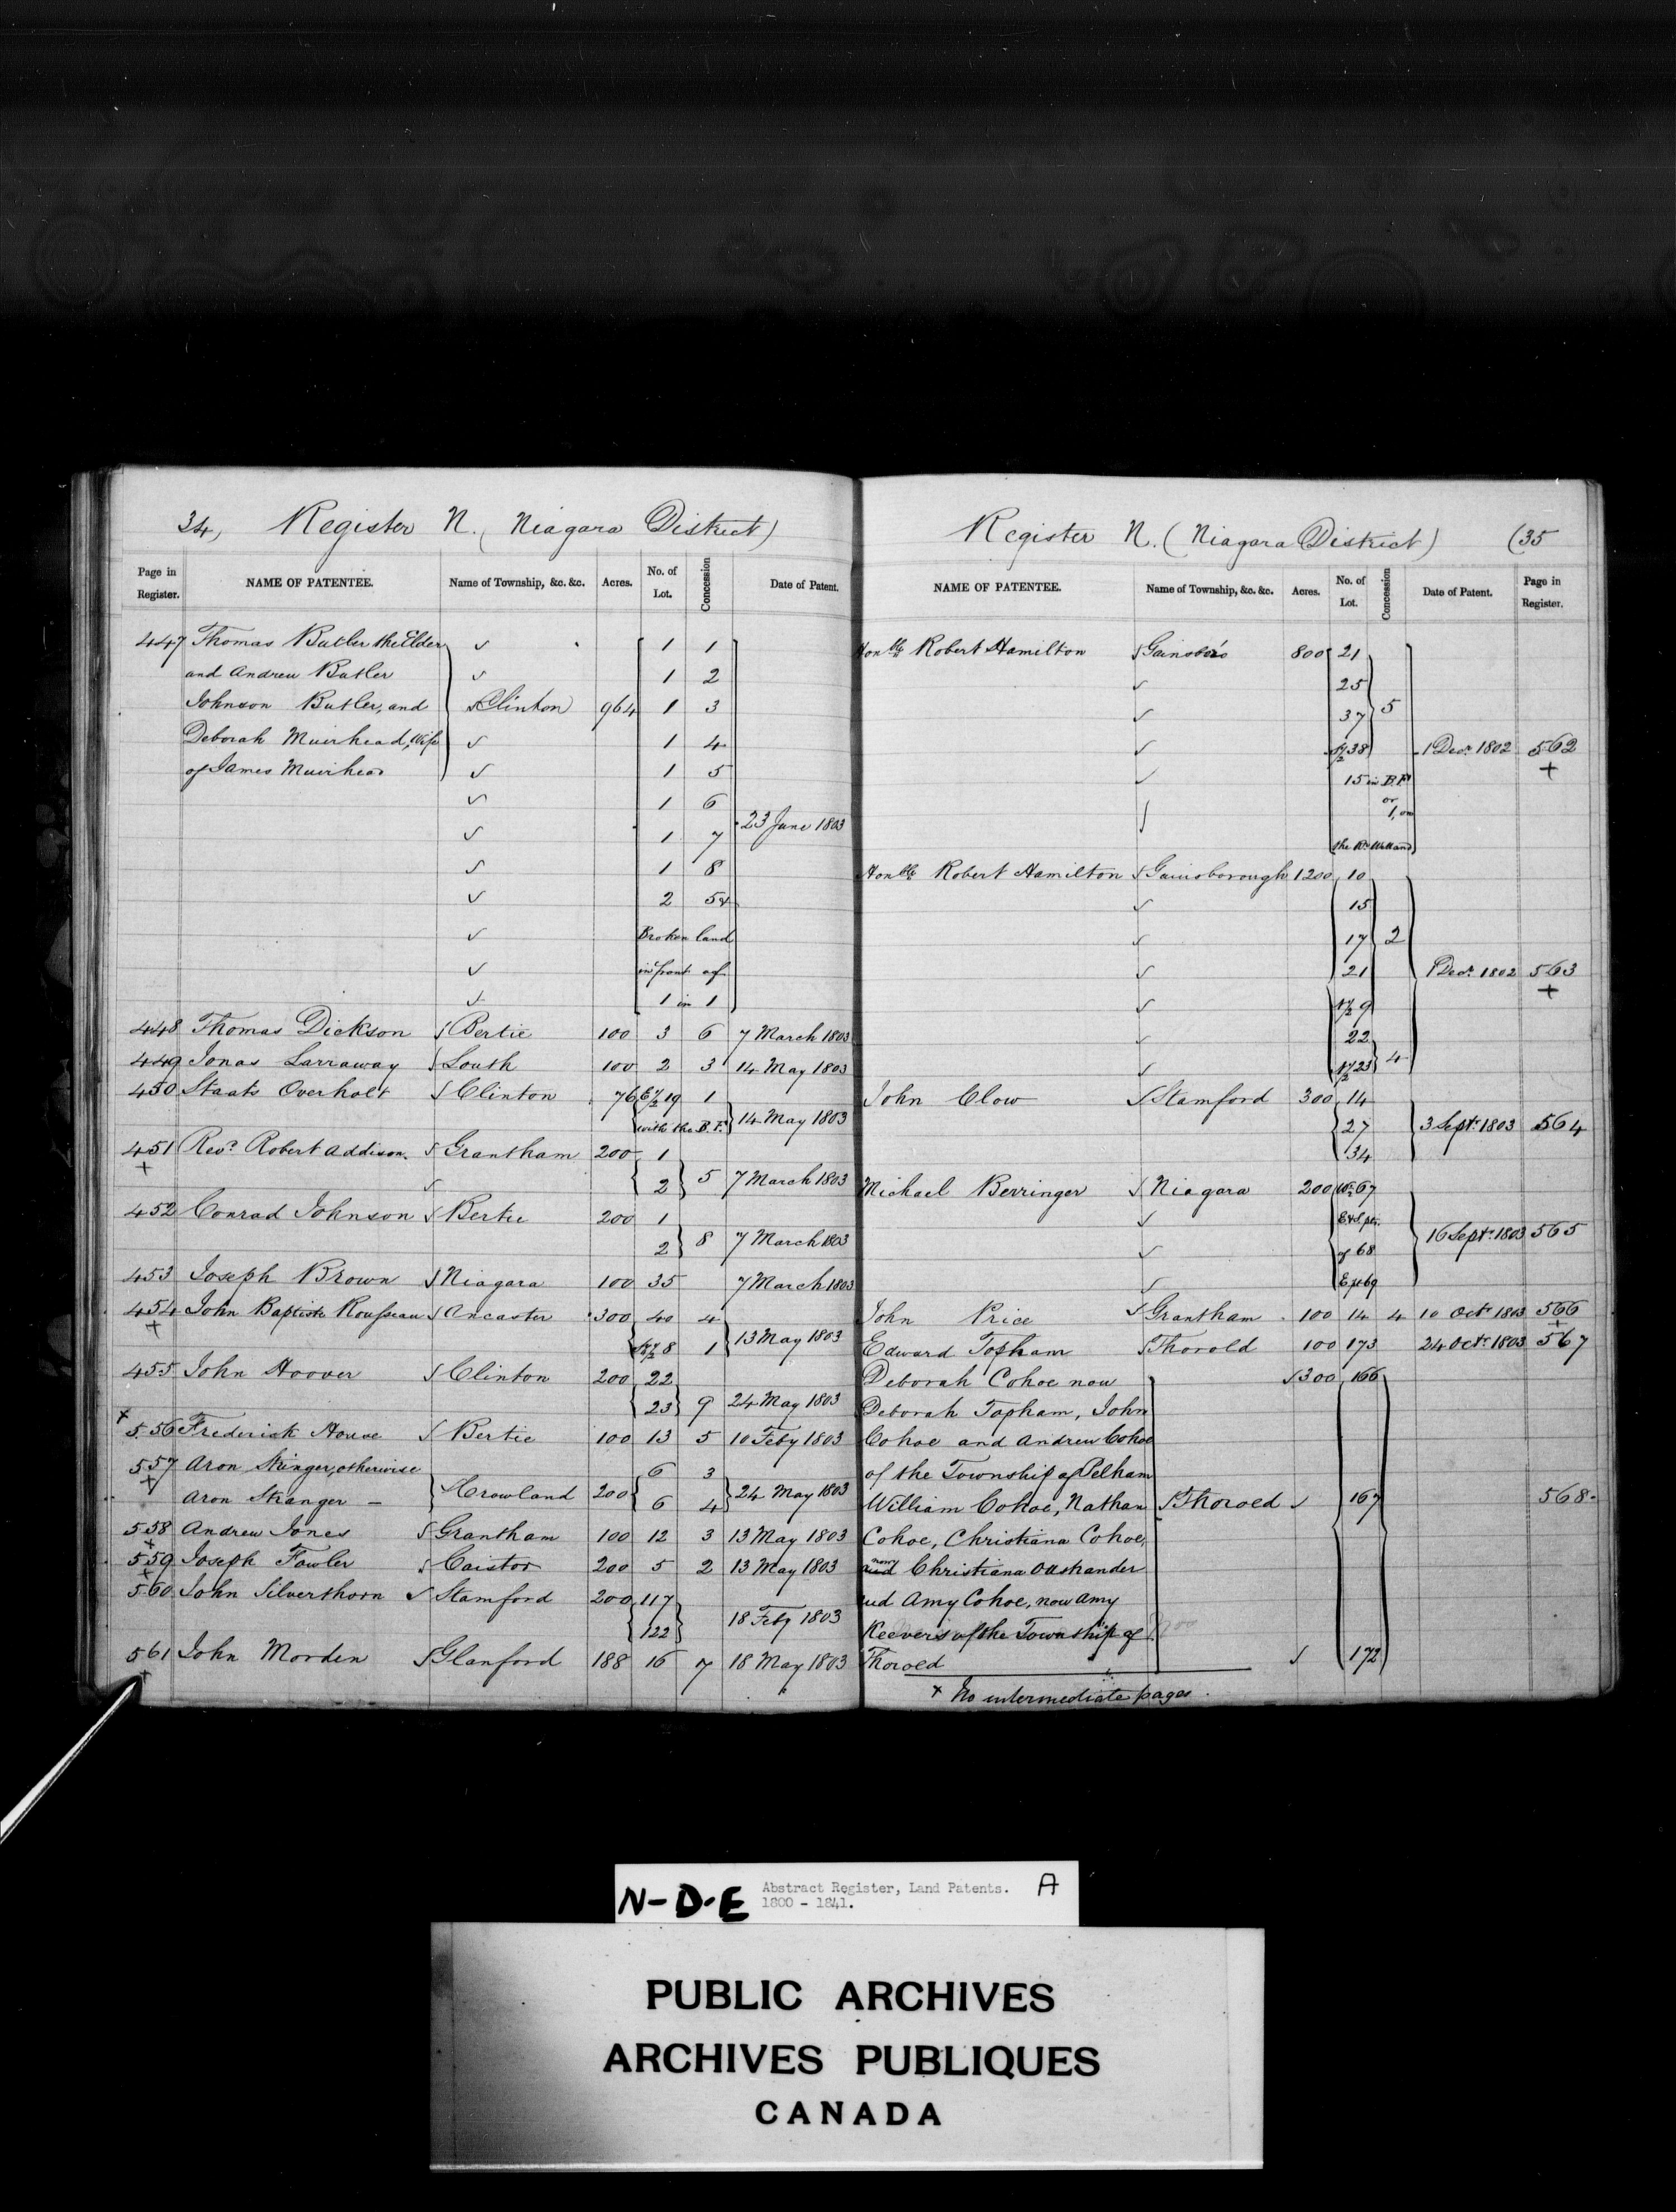 34, Register N. (Niagara District)
Page in Register. NAME OF PATENTEE. Name of Township, &c. &c. Acres. No. of Lot. Concession Date of Patent.
447 Thomas Butler the Elder 1 1
and Andrew Butler 1 2
Johnson Butler, and Clinton 964 1 3
Deborah Muirhead, Wife 1 4
of James Muirhead 1 5
1 6
1 7 23 June 1803
1 8
2 5 &
Broken land
in front of
1 in 1
448 Thomas Dickson Bertie 100 3 6 7 March 1803
449 Jonas Larraway Louth 100 2 3 14 May 1803
450 Staats Overholt Clinton 76 E 1/2 19 1
with the B.F. 14 May 1803
451 Revd. Robert Addison Grantham 200 1
+ 2 5 7 March 1803
452 Conrad Johnson Bertie 200 1
2 8 7 March 1803
453 Joseph Brown Niagara 100 35 7 March 1803
454 John Baptiste Rousseau Ancaster 300 40 4
+ 1/2 8 1 13 May 1803
455 John Hoover Clinton 200 22
23 9 24 May 1803
x 556 Frederick House Bertie 100 13 5 10 Feby 1803
557 Aron Stringer, otherwise 6 3
+ Aron Stranger — Crowland 200 6 4 24 May 1803
558 Andrew Jones Grantham 100 12 3 13 May 1803
+ 559 Joseph Fowler Caistor 200 5 2 13 May 1803
+ 560 John Silverthorn Stamford 200 117
122 18 Feby 1803
561 John Morden Glanford 188 16 7 18 May 1803
+
Register N. (Niagara District) (35
NAME OF PATENTEE. Name of Township, &c. &c. Acres. No. of Lot. Concession Date of Patent. Page in Register.
Honble Robert Hamilton Gainsboro 800 21
25
37 5
1/2 38 1 Decr. 1802 562
15 in B.F. +
or
1, on
the Rr. Welland
Honble Robert Hamilton Gainsborough 1200 10
15
17 2
21 1 Decr. 1802 563
1/2 9 +
22
1/2 23 4
John Clow Stamford 300 14
27 3 Septr. 1803 564
34
Michael Berringer Niagara 200 67
of 68 16 Septr. 1803 565
69
John Price Grantham 100 14 4 10 Octr. 1803 566
+
Edward Topham Thorold 100 173 24 Octr. 1803 567
Deborah Cohoe now 300 166
Deborah Topham, John
Cohoe and Andrew Cohoe
of the Township of Pelham
William Cohoe, Nathan Thorold 167 568
Cohoe, Christiana Cohoe,
now Christiana Oustrander
and Amy Cohoe, now Amy
Reevers of the Township of
Thorold 172
x No intermediate pages.
N-D-E Abstract Register, Land Patents. A
1800 - 1841.
PUBLIC ARCHIVES
ARCHIVES PUBLIQUES
CANADA